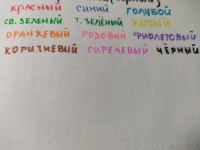 красный синий голубой
св. зелёный т. зелёный жёлтый
оранжевый розовый фиолетовый
коричневый сиреневый чёрный